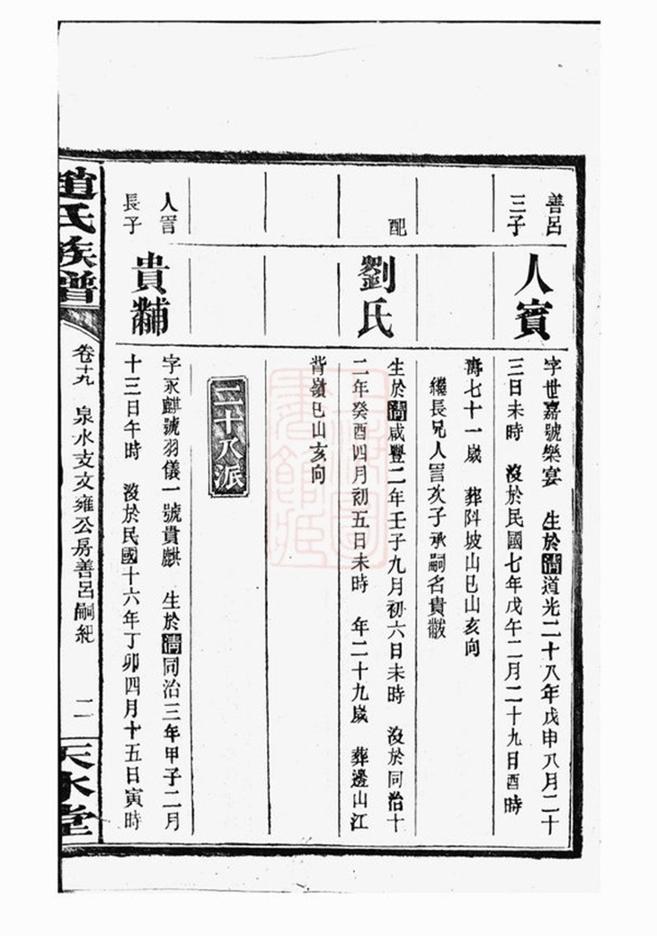 善呂
三子
人賓
字世嘉號樂宴 生於清道光二十八年戊申八月二十
三日未時 沒於民國七年戊午二月二十九日酉時
壽七十一歲 葬阧坡山巳山亥向
繼長兄人官次子承嗣名貴黻
配
劉氏
生於清咸豐二年壬子九月初六日未時 沒於同治十
二年癸酉四月初五日未時 年二十九歲 葬邊山江
背嶺巳山亥向
二十八派
人官
長子
貴黼
字永麒號羽儀一號貴麒 生於清同治三年甲子二月
十三日午時 沒於民國十六年丁卯四月十五日寅時
趙氏族譜
卷十九 泉水支文雍公房善呂嗣紀 二
天水堂